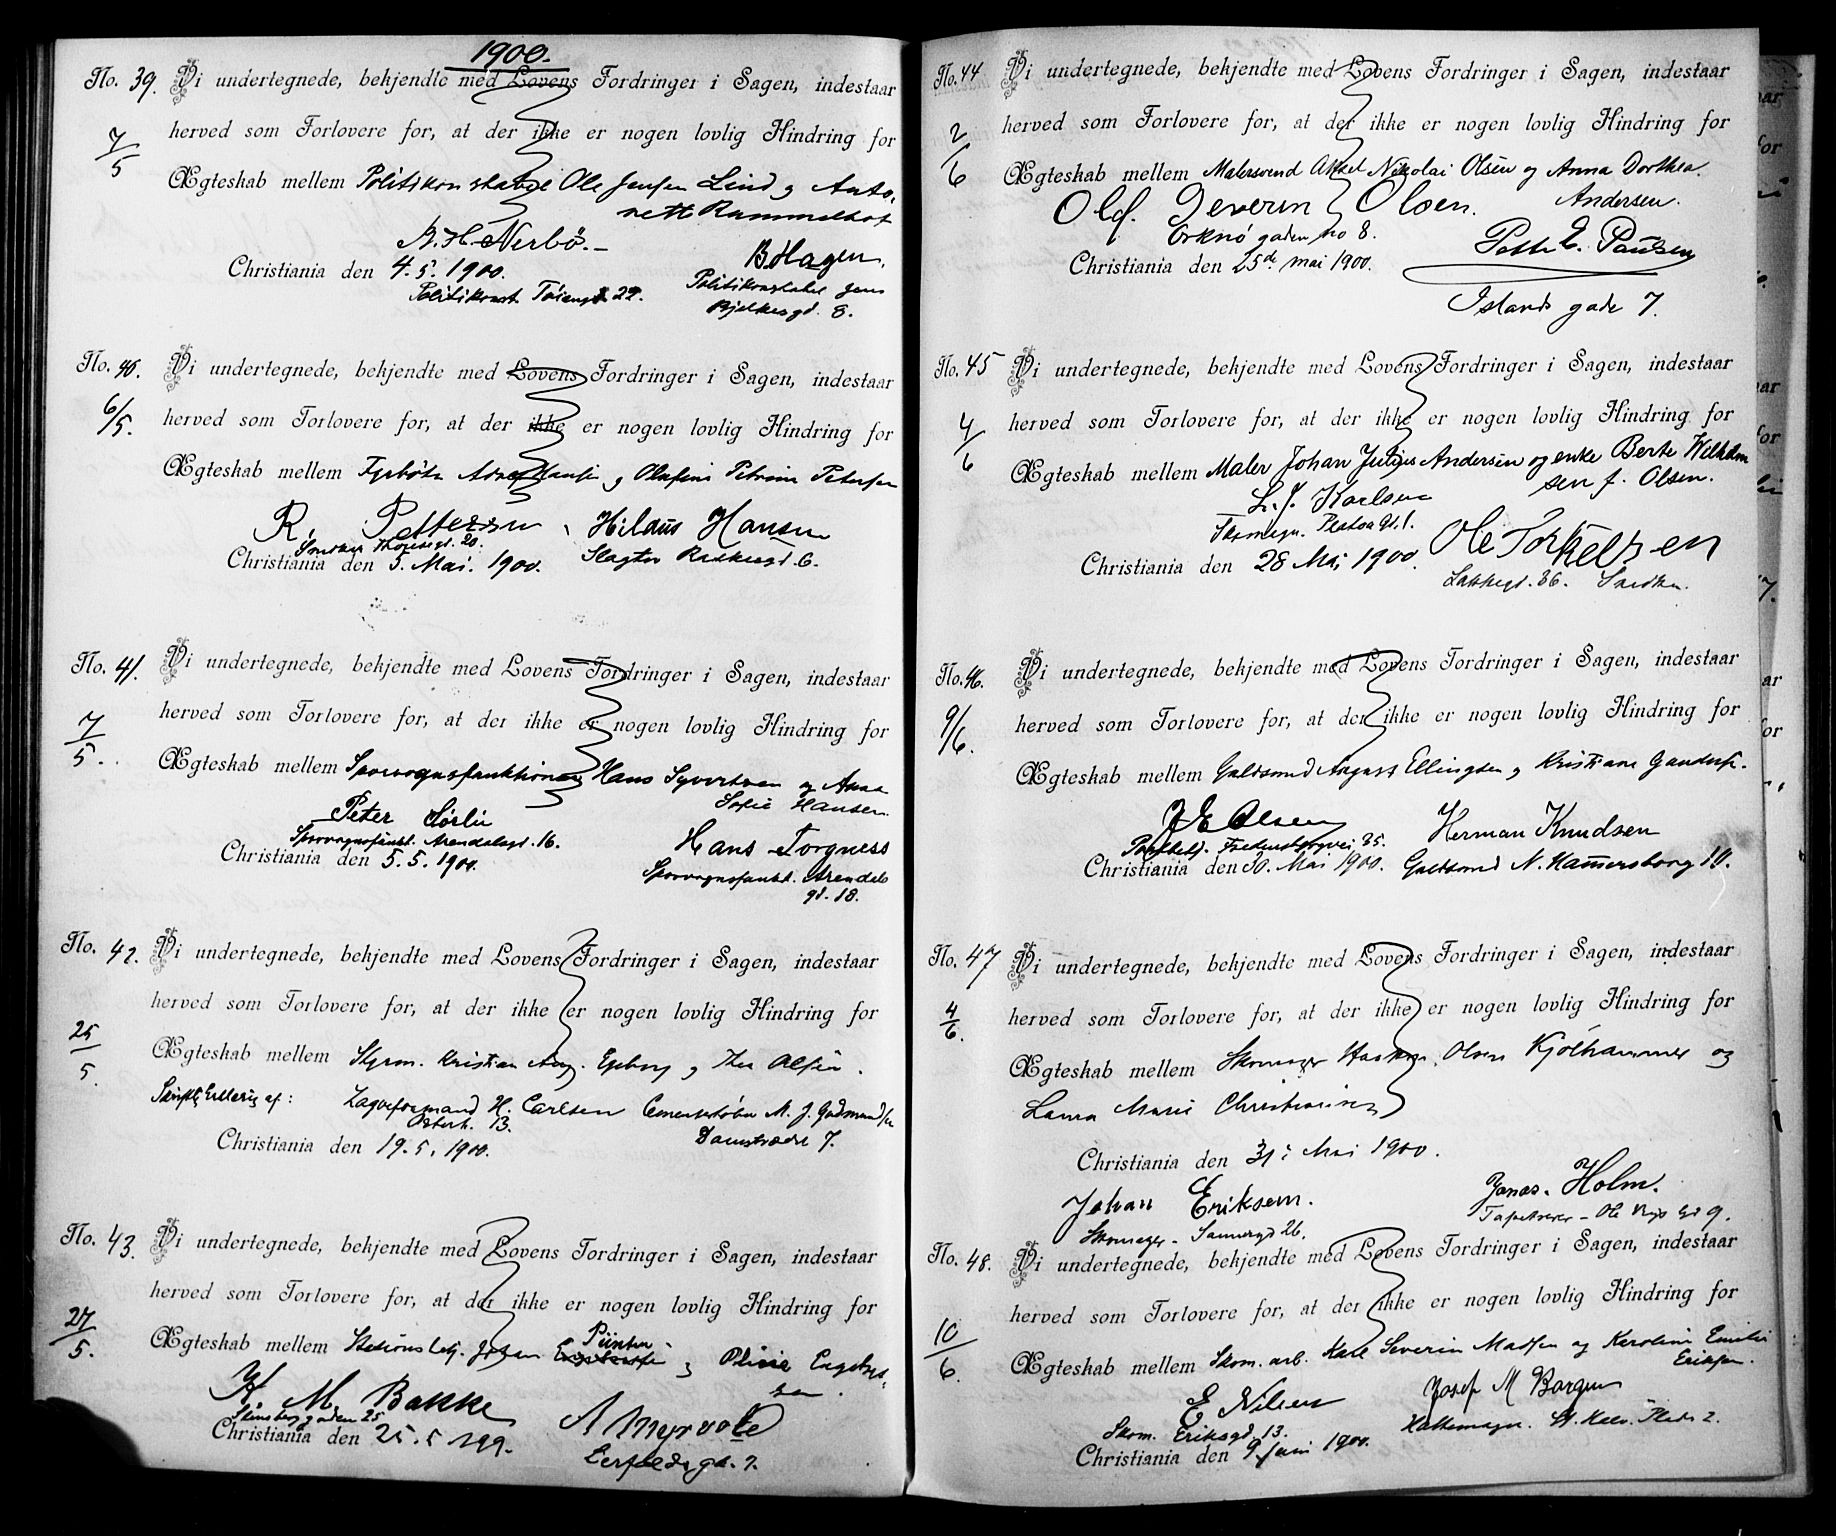 1900.
No. 39. Vi undertegnede, bekjendte med Lovens Fordringer i Sagen, indestaar
7/5 herved som Forlovere for, at der ikke er nogen lovlig Hindring for
Ægteskab mellem Politikonstabel Ole Jensen Lind og Anto-
nett Rammelhof
A. H. Nerbö.
B. Hagen.
Christiania den 4.5.1900.
Politikonst. Töiengd 29.
Politikonstabel Jens
Bjelkesgd. 8.
No. 40. Vi undertegnede, bekjendte med Lovens Fordringer i Sagen, indestaar
6/5. herved som Forlovere for, at der ikke er nogen lovlig Hindring for
Ægteskab mellem Fyrböter Hansen og Olufine Petrine Petersen
R. Pettersen Hilaus Hansen
Thorvesgd. 20. Slagter 6.
Christiania den 5. Mai. 1900.
No. 41. Vi undertegnede, bekjendte med Lovens Fordringer i Sagen, indestaar
7/5. herved som Forlovere for, at der ikke er nogen lovlig Hindring for
Ægteskab mellem Sporvognsfunktionær Hans Syvertsen og Anna
Sofie Hansen
Peter Sörlie
Sporvognsfunkt. Arendalsgd. 16.
Hans Torgness
Christiania den 5.5.1900.
Sporvognsfunkt. Arendals
gd. 18.
No. 42. Vi undertegnede, bekjendte med Lovens Fordringer i Sagen, indestaar
herved som Forlovere for, at der ikke er nogen lovlig Hindring for
25/5. Ægteskab mellem Styrm. Kristian Aug. Egeberg og Thea Olsen.
Skriftlig Erklæring af: Lagveformand H. Carlsen Cementstöber M. J. Gudmundsen
Osterh. 13. Damstrædet 7.
Christiania den 19.5.1900.
No. 43. Vi undertegnede, bekjendte med Lovens Fordringer i Sagen, indestaar
herved som Forlovere for, at der ikke er nogen lovlig Hindring for
27/5. Ægteskab mellem Stationsbetj. Johan og Engebret-
sen.
K M. Bakke
Stensberggaden 25
A Myrvold
Christiania den 25.5.199.
7.
No. 44 Vi undertegnede, bekjendte med Lovens Fordringer i Sagen, indestaar
2/6 herved som Forlovere for, at der ikke er nogen lovlig Hindring for
Ægteskab mellem Malersvend Aksel Nikolai Olsen og Anna Dorthea
Andersen.
Olf. Severin Olsen.
Orknögaden no 8.
E. Paulsen
Christiania den 25de mai 1900.
Islands gade 7.
No. 45 Vi undertegnede, bekjendte med Lovens Fordringer i Sagen, indestaar
4/6 herved som Forlovere for, at der ikke er nogen lovlig Hindring for
Ægteskab mellem Maler Johan Julius Andersen og enke Berte Wilhelm
sen f. Olsen.
L. J. Karlsen
Skomagr. Platou Gd. 1.
Ole Torkelsen
Christiania den 28 Mai 1900.
Lakkegd. 36. Snedker.
No. 46. Vi undertegnede, bekjendte med Lovens Fordringer i Sagen, indestaar
9/6. herved som Forlovere for, at der ikke er nogen lovlig Hindring for
Ægteskab mellem Guldsmed August Ellingsen og Kristiane Gundersen.
J E Olsen
Herman Knudsen
Postbetj. Fredensborgvei 35.
Christiania den 30. Mai 1900. Guldsmed N. Hammersborg 10.
No. 47 Vi undertegnede, bekjendte med Lovens Fordringer i Sagen, indestaar
4/6. herved som Forlovere for, at der ikke er nogen lovlig Hindring for
Ægteskab mellem Skomager Olsen Kjölhammer og
Laura Marie Christiansen
Christiania den 31: Mai 1900.
Johan Eriksen. Jonas Holm.
Skomager - Sannergd 26. Tapetserer - Ole Vigs Gd 9.
No. 48. Vi undertegnede, bekjendte med Lovens Fordringer i Sagen, indestaar
herved som Forlovere for, at der ikke er nogen lovlig Hindring for
10/6. Ægteskab mellem Skom. arb. Karl Severin Madsen og Karoline Emilie
Eriksen.
E. Nilsen Josef M Borgen
Skom. Eriksgd. 13. Hattemager. St. Halv. Plads 2.
Christiania den 9 Juni 1900.